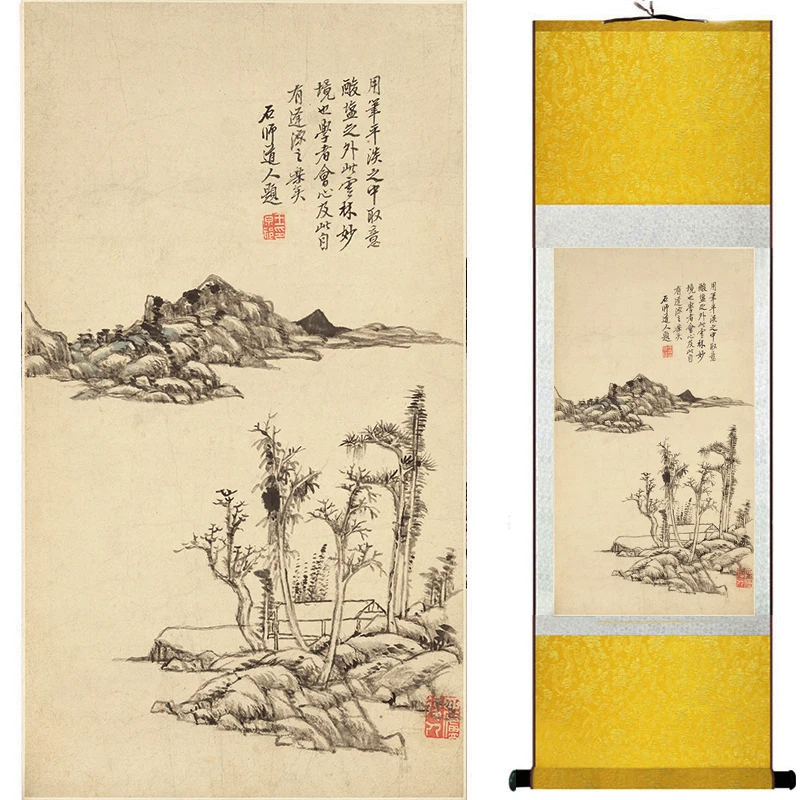 用筆平淡之中取意
酸鹽之外此雲林妙
境也學者會心及此自
有逢源之樂矣
石師道人題
王原祁印
用筆平淡之中取意
酸鹽之外此雲林妙
境也學者會心及此自
有逢源之樂矣
石師道人題